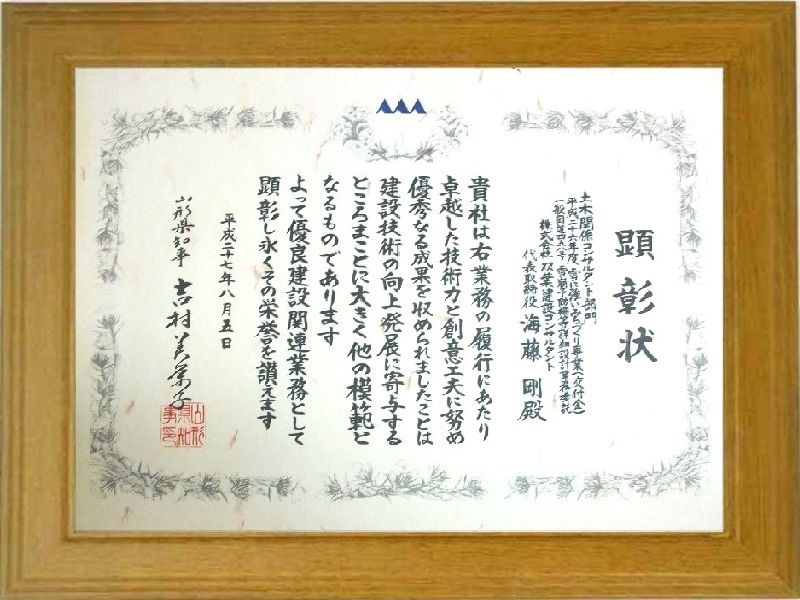 顕彰状
土木関係コンサルタント部門
平成二十六年度 雪に強いみちづくり事業(交付金)
一般国道四五八号 雪崩予防柵等詳細設計業務委託
株式会社 双葉建設コンサルタント
代表取締役 海藤 剛殿
貴社は右業務の履行にあたり
卓越した技術力と創意工夫に努め
優秀なる成果を収められましたことは
建設技術の向上発展に寄与する
ところまことに大きく他の模範と
なるものであります
よって優良建設関連業務として
顕彰し永くその栄誉を讃えます
平成二十七年八月五日
山形県知事 吉村美栄子
山形県知事印